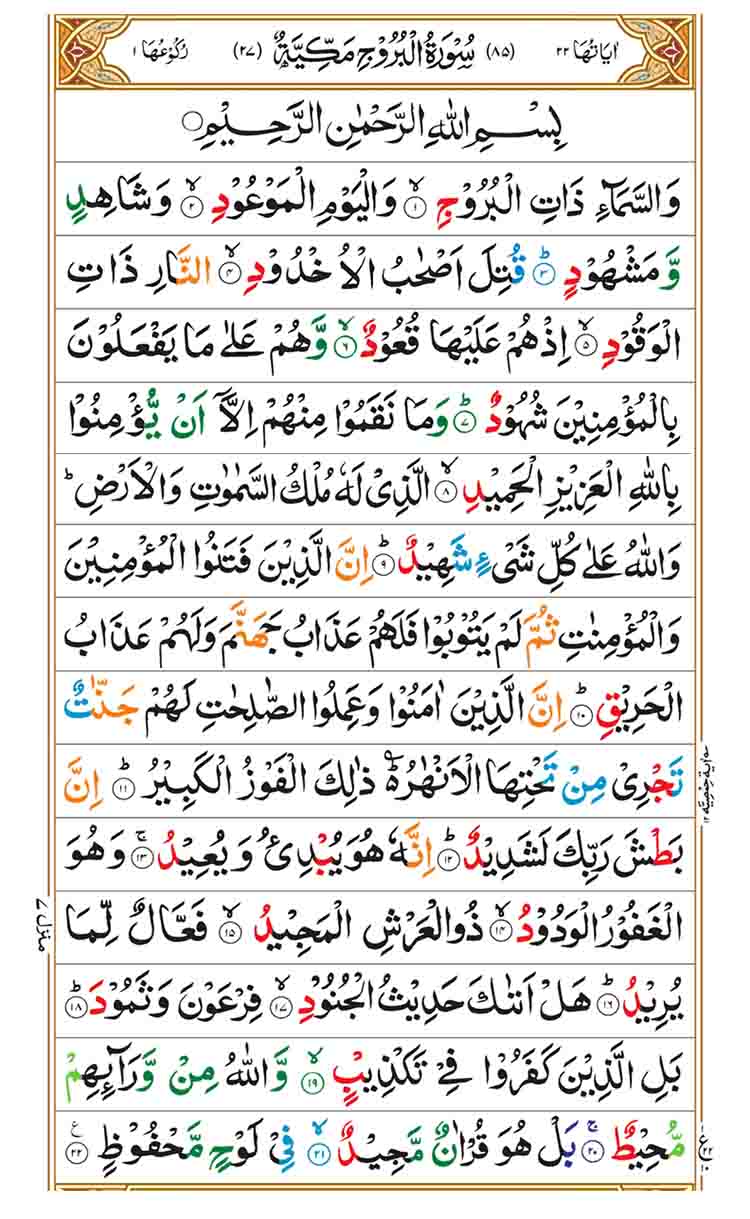 اٰيَاتُهَا ٢٢ (٨٥) سُوْرَةُ الْبُرُوْجِ مَكِّيَّةٌ (٢٧) رُكُوْعُهَا ١
بِسْمِ اللّٰهِ الرَّحْمٰنِ الرَّحِيْمِ ○
وَالسَّمَآءِ ذَاتِ الْبُرُوْجِ ۙ‏ ١ وَالْيَوْمِ الْمَوْعُوْدِ ۙ‏ ٢ وَشَاهِدٍ
وَّ مَشْهُوْدٍ ؕ‏ ٣ قُتِلَ اَصْحٰبُ الْاُخْدُوْدِ ۙ‏ ٤ النَّارِ ذَاتِ
الْوَقُوْدِ ۙ‏ ٥ اِذْ هُمْ عَلَيْهَا قُعُوْدٌ ۙ‏ ٦ وَّ هُمْ عَلٰى مَا يَفْعَلُوْنَ
بِالْمُؤْمِنِيْنَ شُهُوْدٌ ؕ‏ ٧ وَمَا نَقَمُوْا مِنْهُمْ اِلَّاۤ اَنْ يُّؤْمِنُوْا
بِاللّٰهِ الْعَزِيْزِ الْحَمِيْدِ ۙ‏ ٨ الَّذِىْ لَهٗ مُلْكُ السَّمٰوٰتِ وَالْاَرْضِ ؕ
وَاللّٰهُ عَلٰى كُلِّ شَىْءٍ شَهِيْدٌ ؕ‏ ٩ اِنَّ الَّذِيْنَ فَتَنُوا الْمُؤْمِنِيْنَ
وَالْمُؤْمِنٰتِ ثُمَّ لَمْ يَتُوْبُوْا فَلَهُمْ عَذَابُ جَهَنَّمَ وَلَهُمْ عَذَابُ
الْحَرِيْقِ ؕ‏ ١٠ اِنَّ الَّذِيْنَ اٰمَنُوْا وَعَمِلُوا الصّٰلِحٰتِ لَهُمْ جَنّٰتٌ
تَجْرِىْ مِنْ تَحْتِهَا الْاَنْهٰرُ ؕ ذٰلِكَ الْفَوْزُ الْكَبِيْرُ ؕ‏ ١١ اِنَّ
بَطْشَ رَبِّكَ لَشَدِيْدٌ ؕ‏ ١٢ اِنَّهٗ هُوَ يُبْدِئُ وَ يُعِيْدُ ۚ‏ ١٣ وَ هُوَ
الْغَفُوْرُ الْوَدُوْدُ ۙ‏ ١٤ ذُو الْعَرْشِ الْمَجِيْدُ ۙ‏ ١٥ فَعَّالٌ لِّمَا
يُرِيْدُ ؕ‏ ١٦ هَلْ اَتٰٮكَ حَدِيْثُ الْجُنُوْدِ ۙ‏ ١٧ فِرْعَوْنَ وَ ثَمُوْدَ ؕ‏ ١٨
بَلِ الَّذِيْنَ كَفَرُوْا فِىْ تَكْذِيْبٍ ۙ‏ ١٩ وَّ اللّٰهُ مِنْ وَّرَآئِهِمْ
مُّحِيْطٌ ۚ‏ ٢٠ بَلْ هُوَ قُرْاٰنٌ مَّجِيْدٌ ۙ‏ ٢١ فِىْ لَوْحٍ مَّحْفُوْظٍ ع ٢٢
منزل ٧